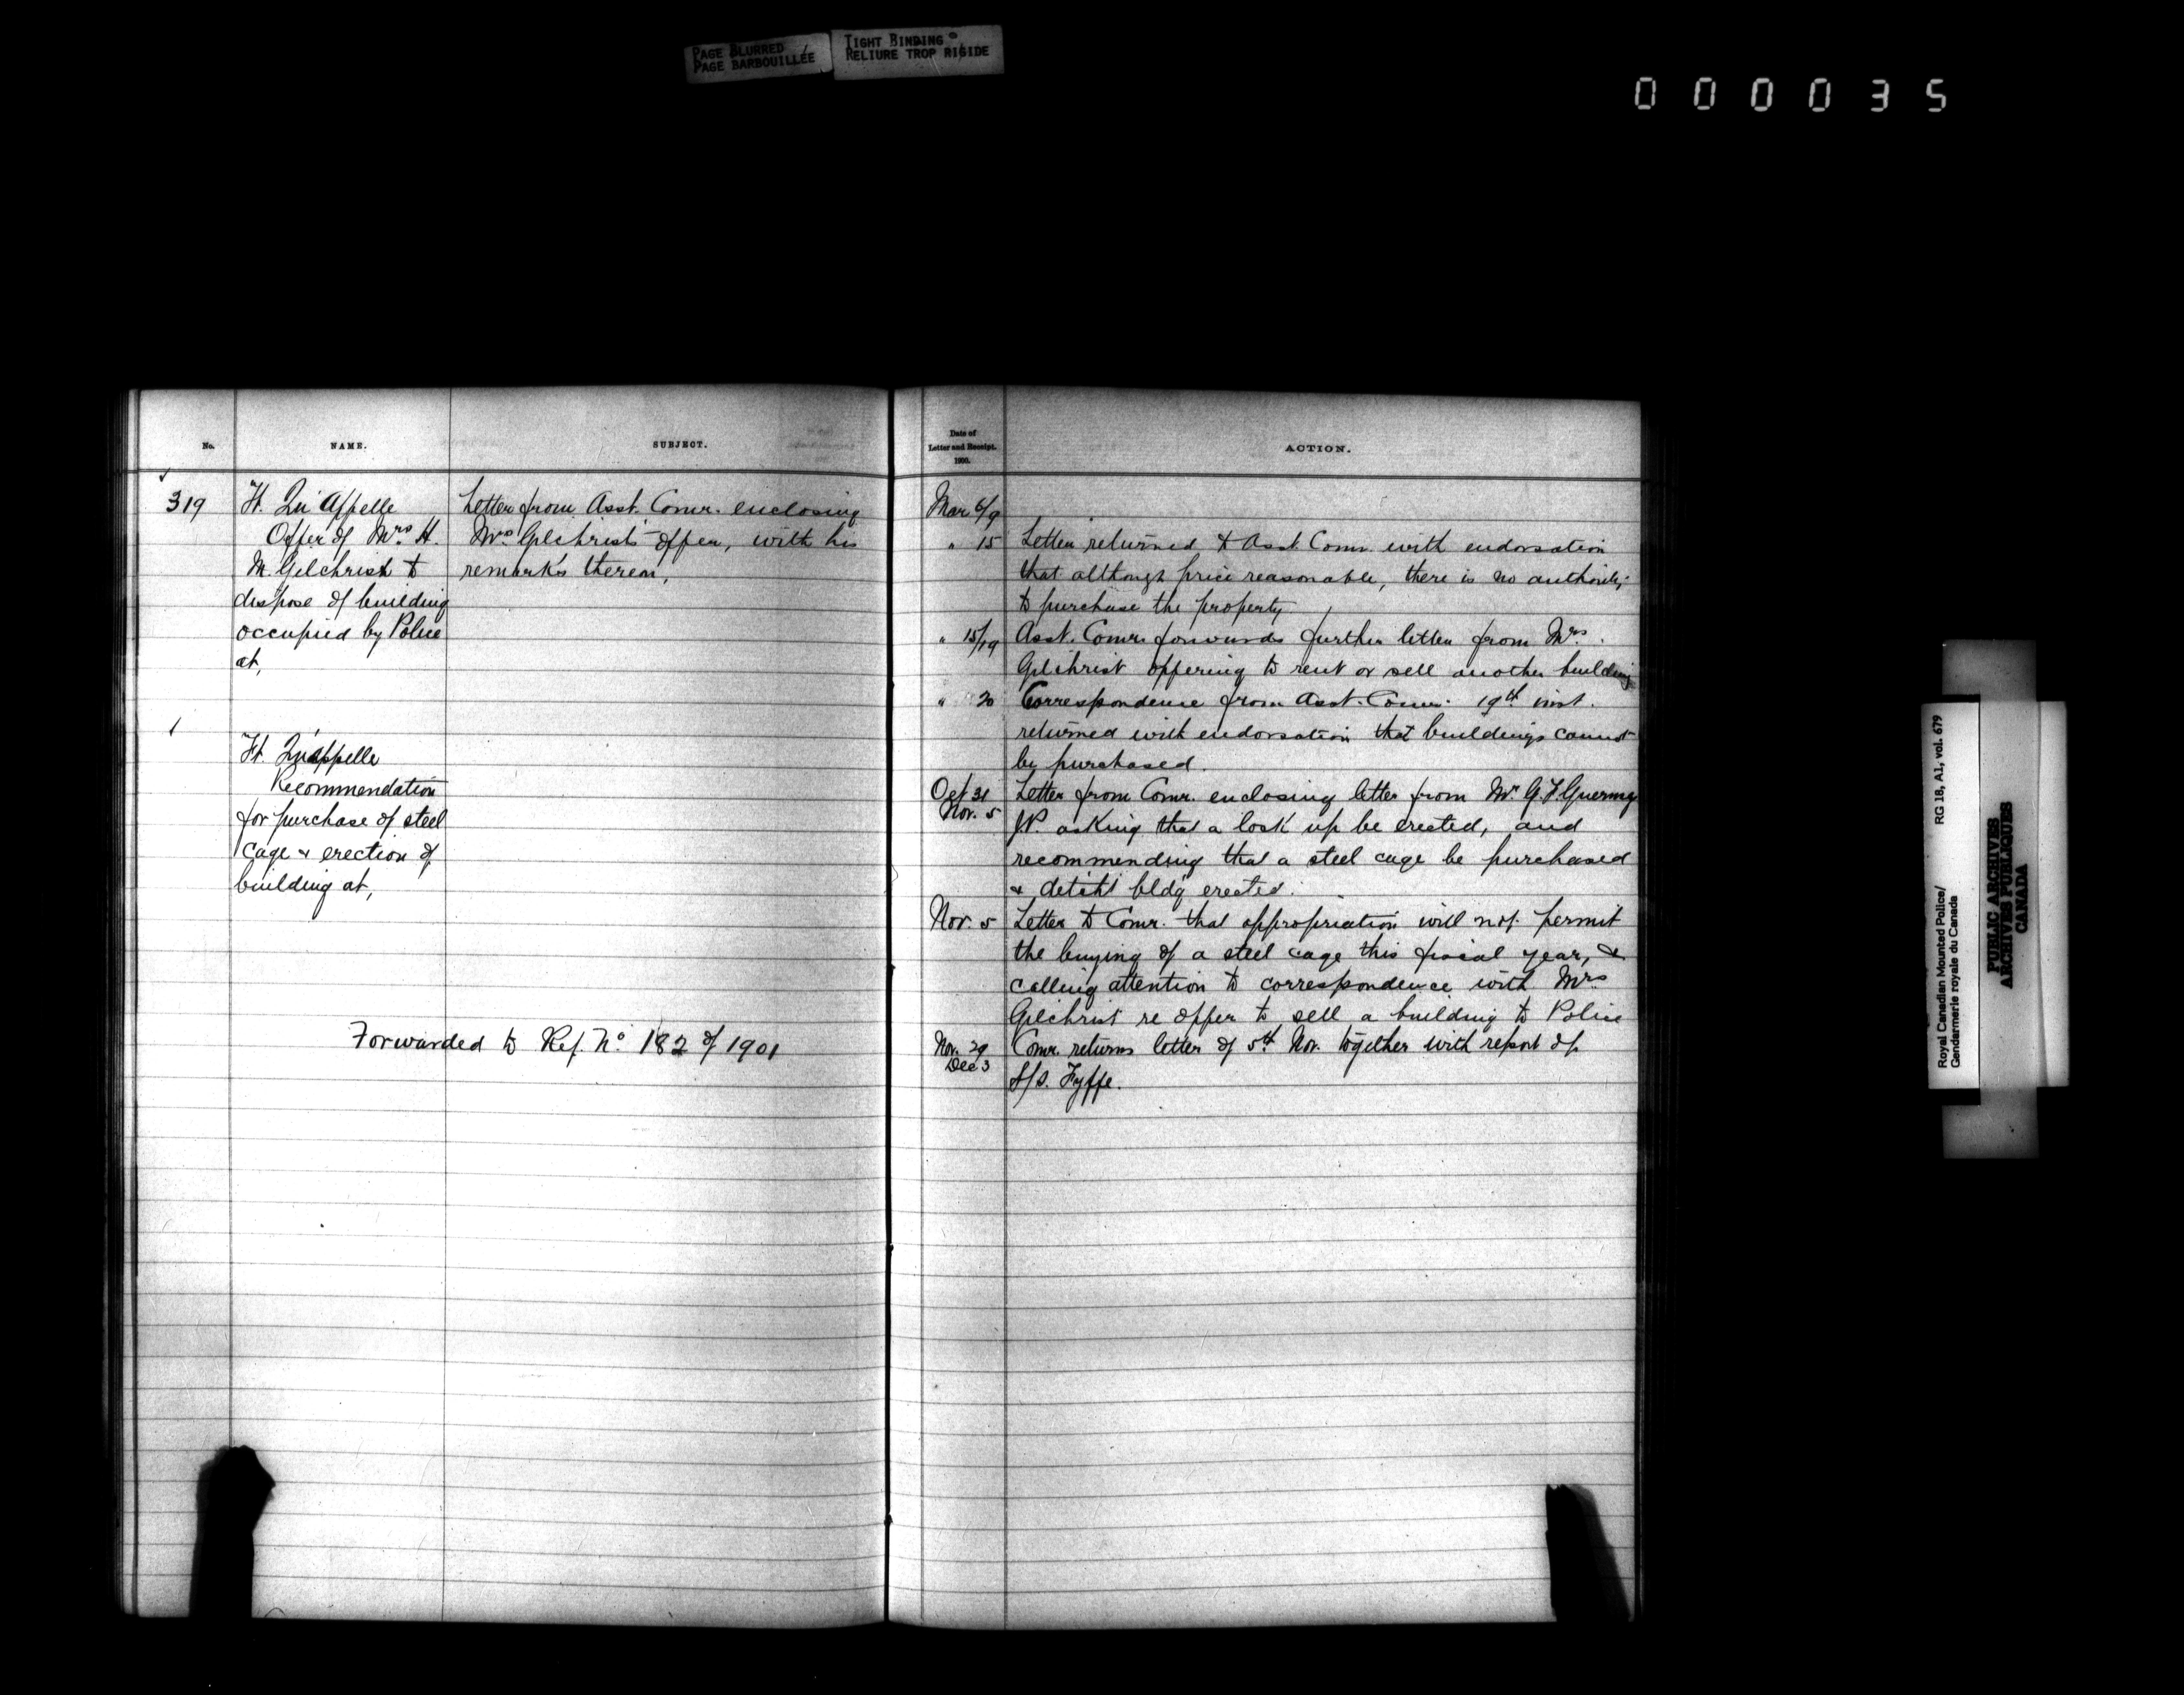 PAGE BLURRED
PAGE BARBOUILLÉE
TIGHT BINDING
RELIURE TROP RIGIDE
000035
No.
NAME.
SUBJECT.
319
Ft. Qu'Appelle
Offer of Mrs. H.
M. Gilchrist to
dispose of building
occupied by Police
at,
Letter from Asst. Comr. enclosing
Mrs. Gilchrist's offer, with his
remarks thereon.
Ft. Qu'appelle
Recommendation
for purchase of steel
cage & erection of
building at,
Forwarded to Ref. No. 182 of 1901
Date of
Letter and Receipt.
1900.
ACTION.
Mar 6/9
" 15 Letter returned to Asst. Comr. with endorsation
that although price reasonable, there is no authority
to purchase the property
" 15/19 Asst. Comr. forwards further letter from Mrs.
Gilchrist offering to rent or sell another building
" 20 Correspondence from Asst. Comr. 19th inst.
returned with endorsation that buildings cannot
be purchased.
Oct 31 Letter from Comr. enclosing letter from Mr. G. F.
Nov. 5 J.P. asking that a lock up be erected, and
recommending that a steel cage be purchased
& detcht bldg erected.
Nov. 5 Letter to Comr. that appropriation will not permit
the buying of a steel cage this fiscal year, &
calling attention to correspondence with Mrs
Gilchrist re offer to sell a building to Police
Nov. 29 Comr. returns letter of 5th Nov. together with report of
Dec 3 S/S. Fyffe.
Royal Canadian Mounted Police/
Gendarmerie royale du Canada
RG 18, A1, vol. 679
PUBLIC ARCHIVES
ARCHIVES PUBLIQUES
CANADA